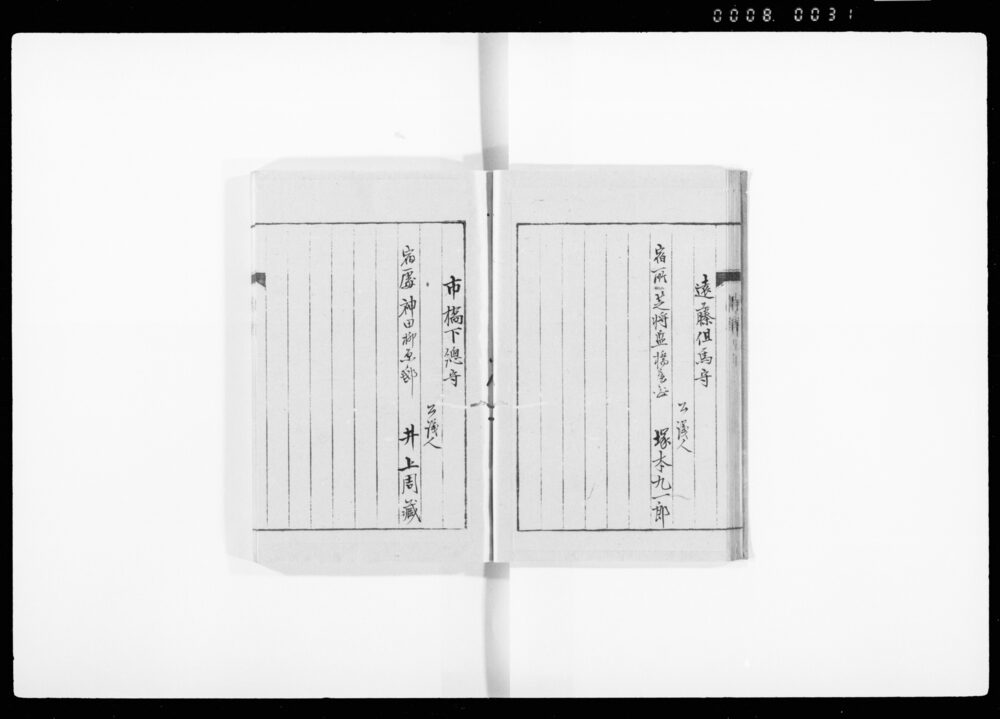 0008 0031
遠藤但馬守
公議人
宿所 芝将監橋
塚本九一郎
市橋下總守
公議人
宿處 神田柳原邸
井上周藏